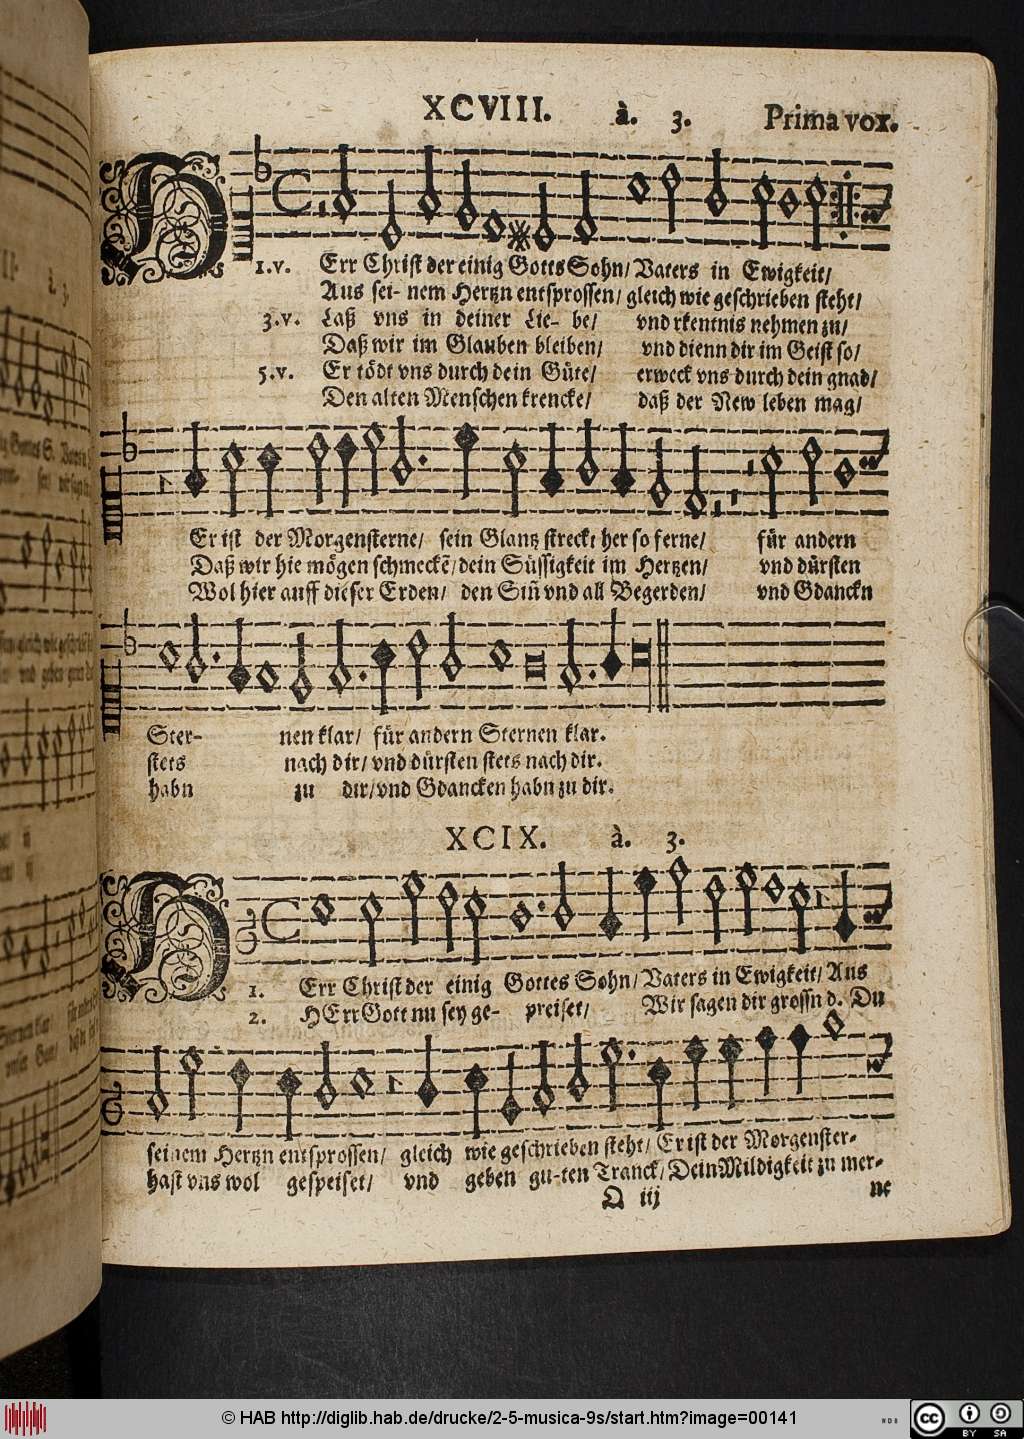 XCVIII. à. 3. Prima vox.
1.v. HErr Christ der einig Gotts Sohn/ Vaters in Ewigkeit/
Aus sei- nem Hertzn entsprossen/ gleich wie geschrieben steht/
3.v. Laß vns in deiner Lie- be/ vnd rkentnis nehmen zu/
Daß wir im Glauben bleiben/ vnd dienn dir im Geist so/
5.v. Er tödt vns durch dein Güte/ erweck vns durch dein gnad/
Den alten Menschen krencke/ daß der New leben mag/
Er ist der Morgensterne/ sein Glantz streckt her so ferne/ für andern
Daß wir hie mögen schmeckẽ/ dein Süssigkeit im Hertzen/ vnd dürsten
Wol hier auff dieser Erden/ den Siñ vnd all Begerden/ vnd Gdanckn
Ster- nen klar/ für andern Sternen klar.
stets nach dir/ vnd dürsten stets nach dir.
habn zu dir/ vnd Gdancken habn zu dir.
XCIX. à. 3.
1. HErr Christ der einig Gottes Sohn/ Vaters in Ewigkeit/ Aus
2. HErr Gott nu sey ge- preiset/ Wir sagen dir grossn d. Du
seinem Hertzn entsprossen/ gleich wie geschrieben steht/ Er ist der Morgenster-
hast vns wol gespeiset/ vnd geben gu-ten Tranck/ Dein Mildigkeit zu mer-
O iij ne
© HAB http://diglib.hab.de/drucke/2-5-musica-9s/start.htm?image=00141
cc BY SA